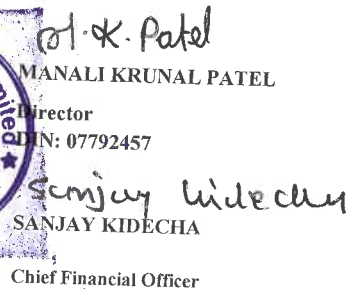 M.K. Patel
MANALI KRUNAL PATEL
Director
DIN: 07792457
Sanjay Kidecha
SANJAY KIDECHA
Chief Financial Officer
mited ★